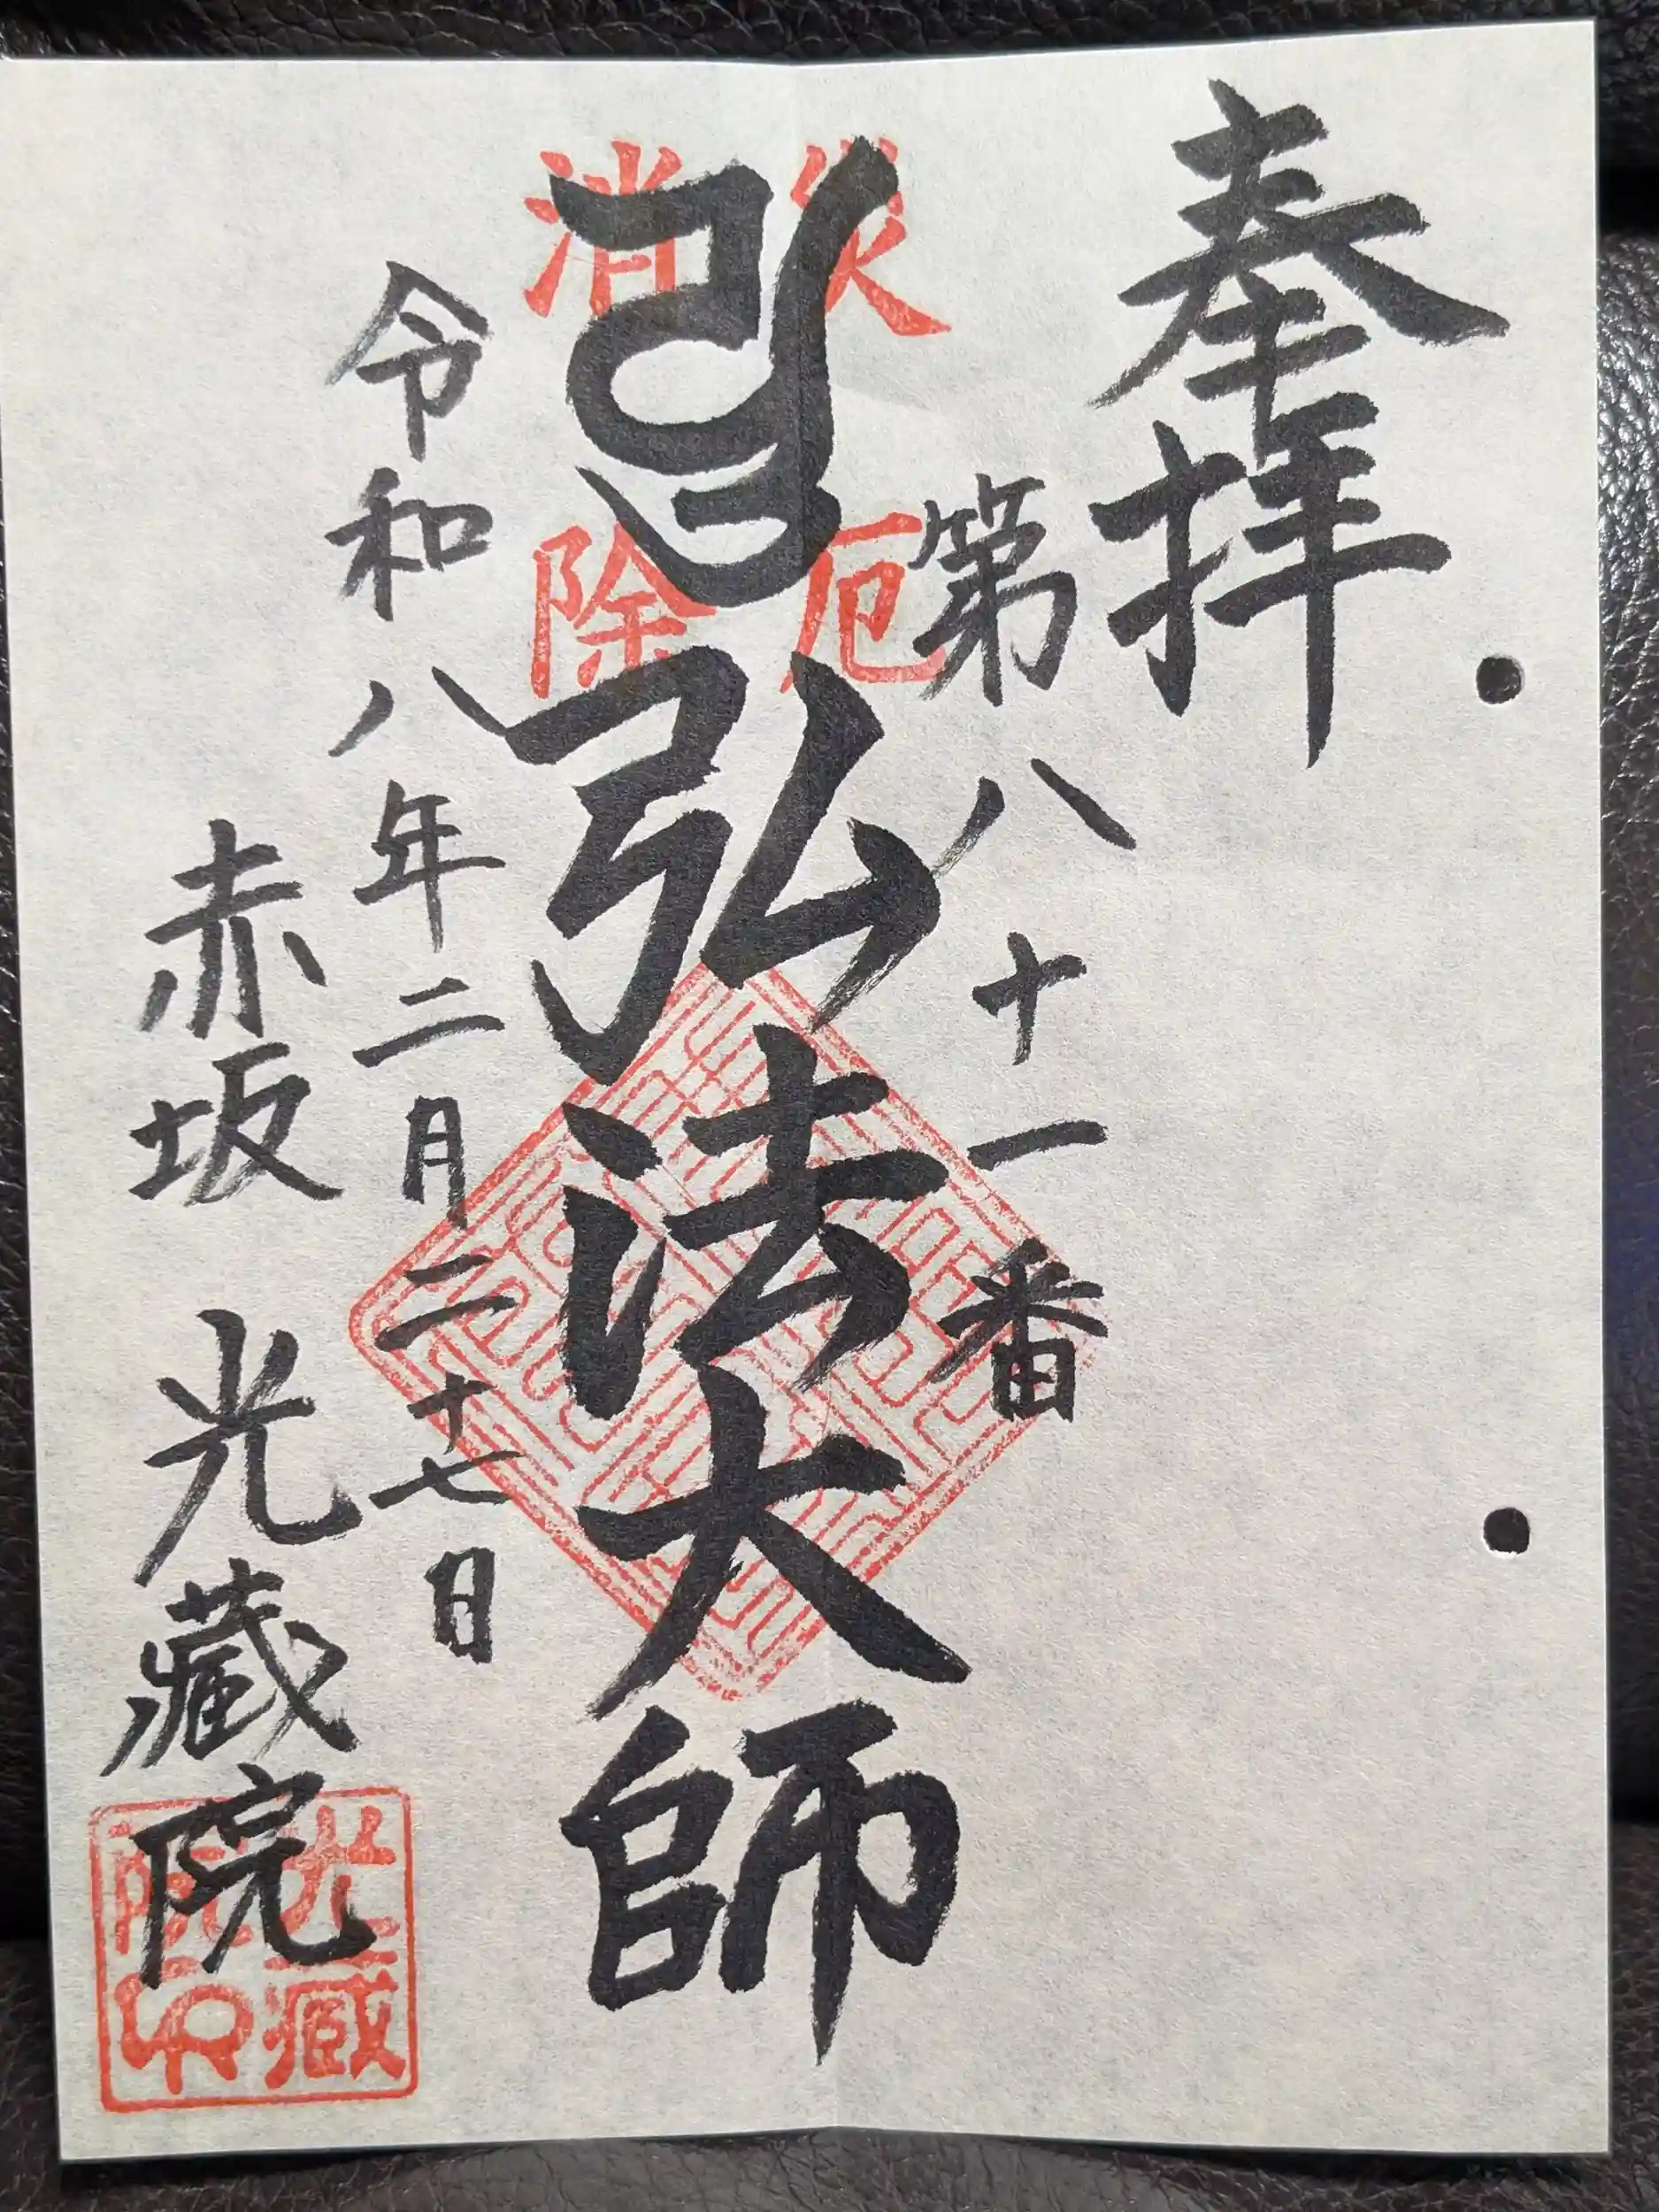 奉拝
第八十一番
弘法大師
災厄
消除
令和八年二月二十七日
赤坂 光蔵院
光蔵院印